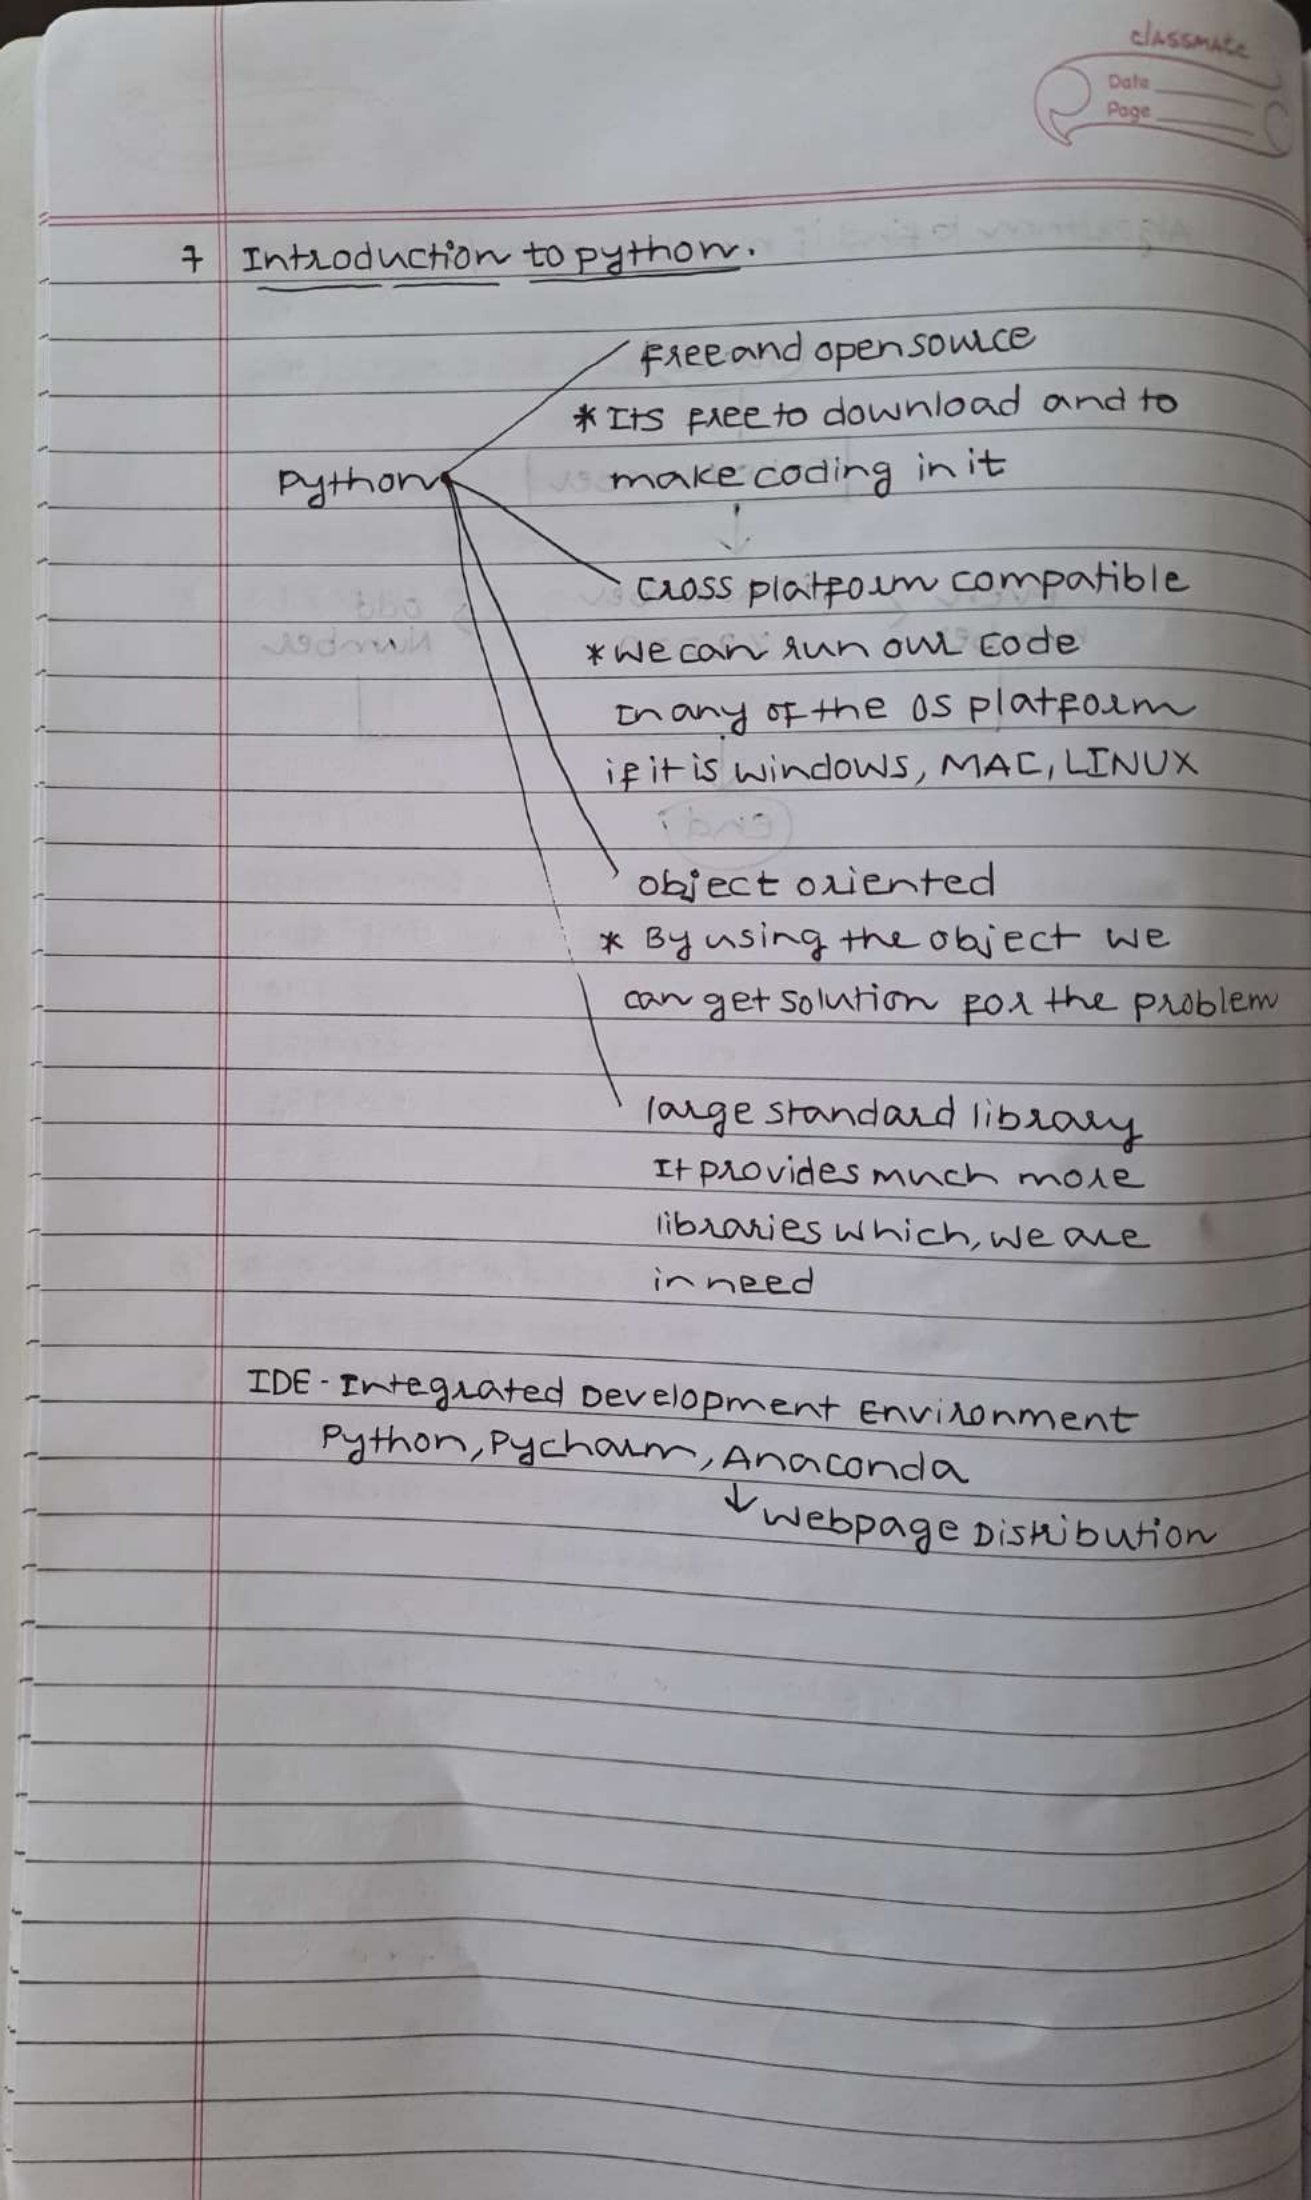 classmate
Date
Page
7 Introduction to python.
Free and open source
* Its free to download and to
Python make coding in it
Cross platform compatible
* we can run our code
In any of the OS platform
if it is windows, MAC, LINUX
object oriented
* By using the object we
can get solution for the problem
large standard library
It provides much more
libraries which, we are
in need
IDE - Integrated Development Environment
Python, Pycharm, Anaconda
↓ Webpage Distribution